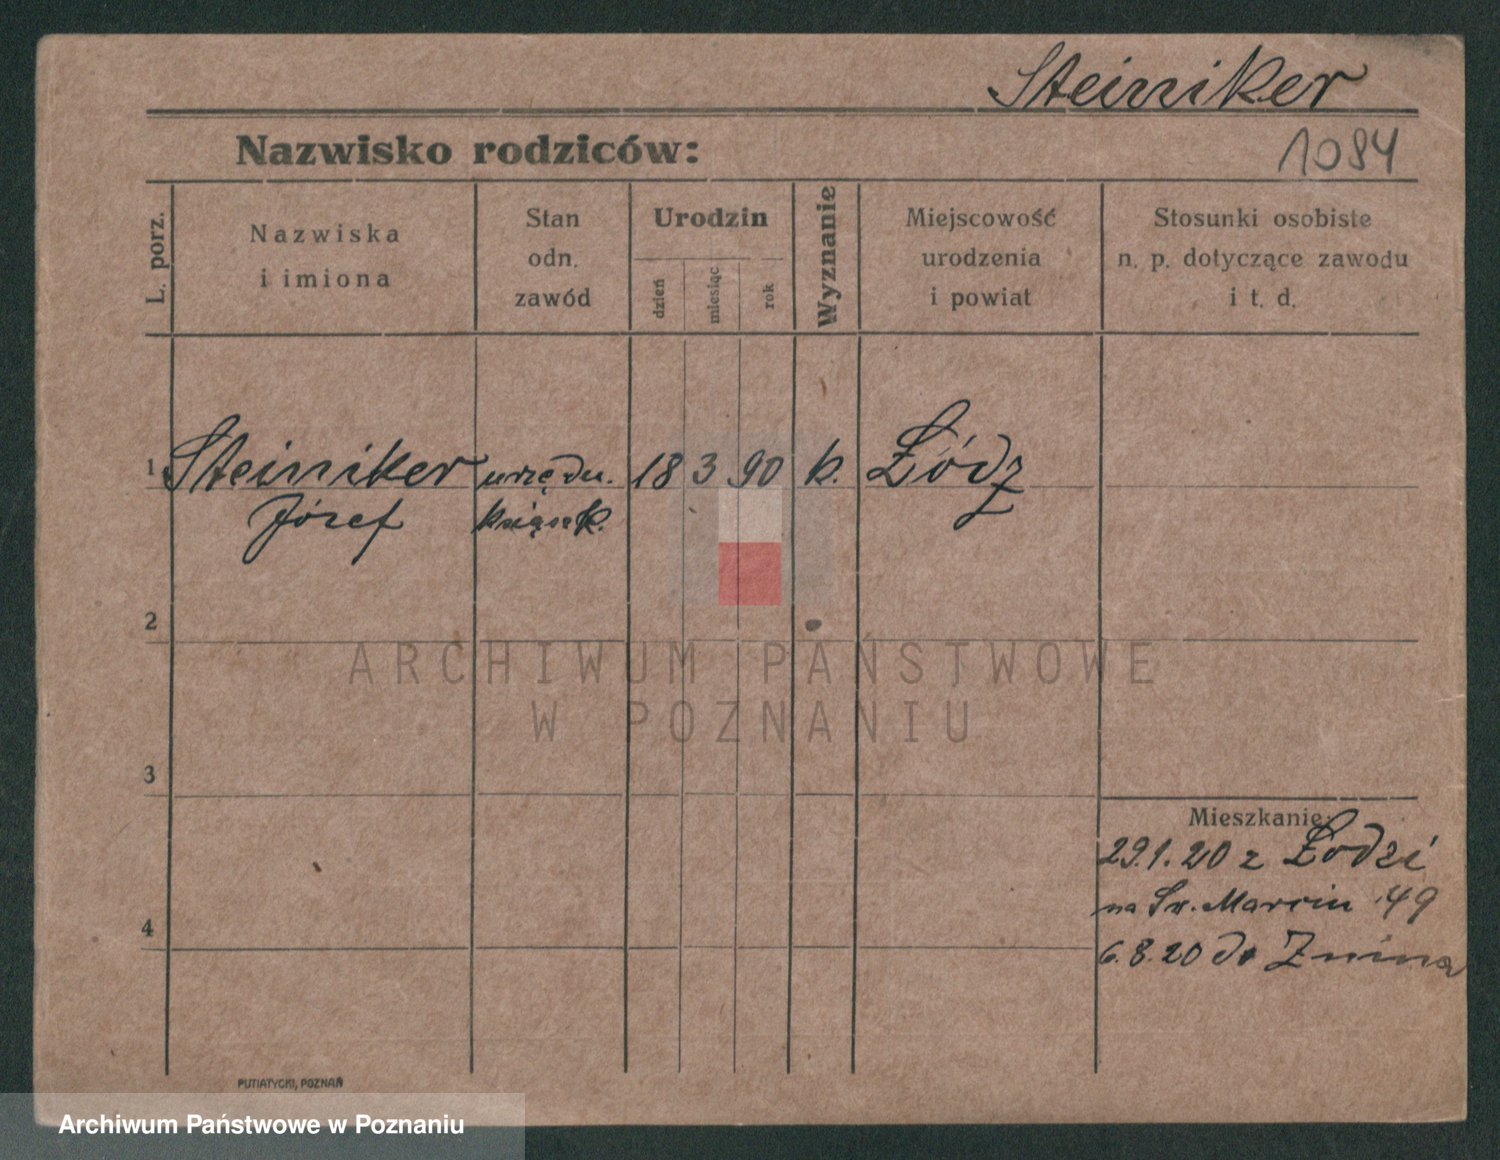 Steiniker
Nazwisko rodziców:
1084
L. porz.
Nazwiska
i imiona
Stan
odn.
zawód
Urodzin
dzień
miesiąc
rok
Wyznanie
Miejscowość
urodzenia
i powiat
Stosunki osobiste
n. p. dotyczące zawodu
i t. d.
1 Steiniker urzędn. 18 3 90 k. Łódz
Józef
2
3
4
Mieszkanie:
29.1.20 z Łodzi
na Św. Marcin 49
6.8.20 do Znina
ARCHIWUM PAŃSTWOWE
W POZNANIU
PUTIATYCKI, POZNAŃ
Archiwum Państwowe w Poznaniu